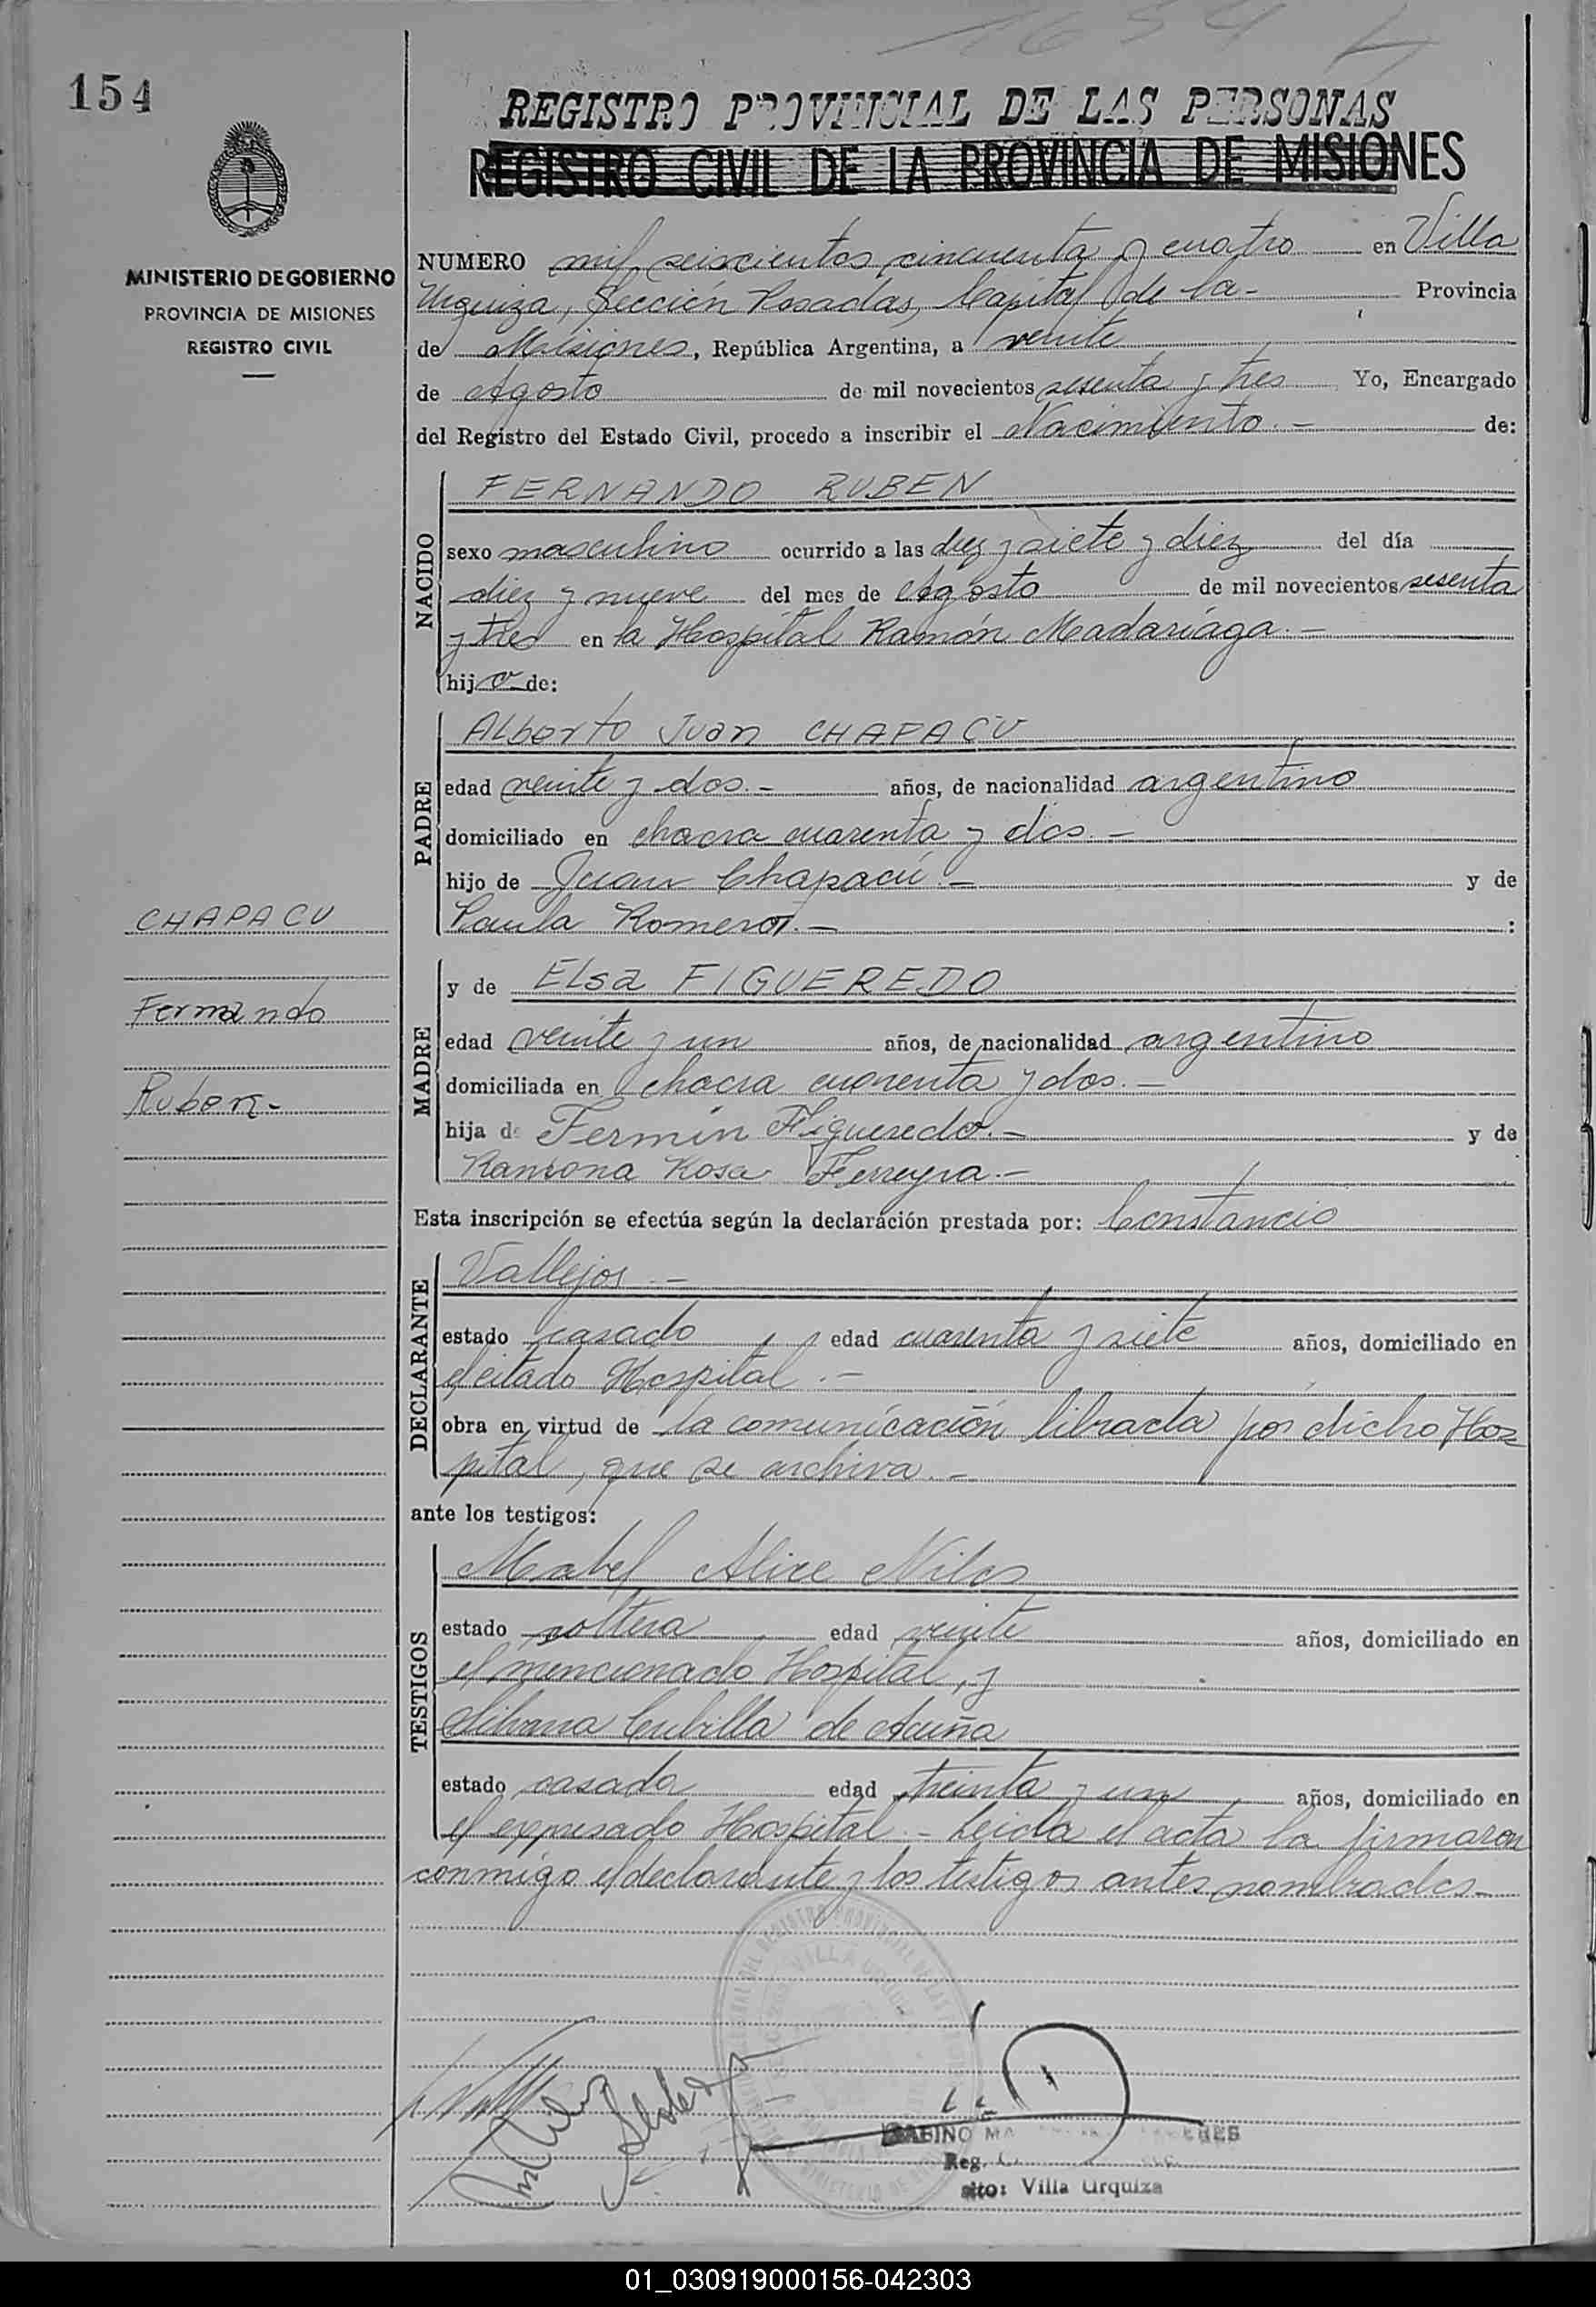 1654
154
REGISTRO PROVINCIAL DE LAS PERSONAS
REGISTRO CIVIL DE LA PROVINCIA DE MISIONES
MINISTERIO DE GOBIERNO
PROVINCIA DE MISIONES
REGISTRO CIVIL
NUMERO mil seiscientos cincuenta y cuatro en Villa
Urquiza, Sección Posadas, Capital de la - Provincia
de Misiones, República Argentina, a veinte
de Agosto de mil novecientos sesenta y tres Yo, Encargado
del Registro del Estado Civil, procedo a inscribir el Nacimiento. - de:
NACIDO
FERNANDO RUBEN
sexo masculino ocurrido a las diez y siete y diez del día
diez y nueve del mes de Agosto de mil novecientos sesenta
y tres en la Hospital Ramón Madariaga. -
hijo de:
PADRE
Alberto Juan CHAPACU
edad veinte y dos. - años, de nacionalidad argentino
domiciliado en chacra cuarenta y dos. -
hijo de Juan Chapacú. - y de
Paula Romero. - :
CHAPACU
Fernando
Ruben -
MADRE
y de Elsa FIGUEREDO
edad veinte y un años, de nacionalidad argentino
domiciliada en chacra cuarenta y dos. -
hija de Fermín Figueredo. - y de
Ramona Rosa Ferreyra. -
Esta inscripción se efectúa según la declaración prestada por: Constancio
DECLARANTE
Vallejos. -
estado casado edad cuarenta y siete años, domiciliado en
el citado Hospital. -
obra en virtud de la comunicación librada por dicho Hos
pital, que se archiva. -
ante los testigos:
TESTIGOS
Mabel Alice
estado soltera edad veinte años, domiciliado en
el mencionado Hospital, y
Cubilla de Acuña
estado casada edad treinta y un años, domiciliado en
el expresado Hospital. - Leída el acta la firmaron
conmigo el declarante y los testigos antes nombrados -
VILLA URQUIZA
SABINO
Reg.
sito: Villa Urquiza
01_030919000156-042303